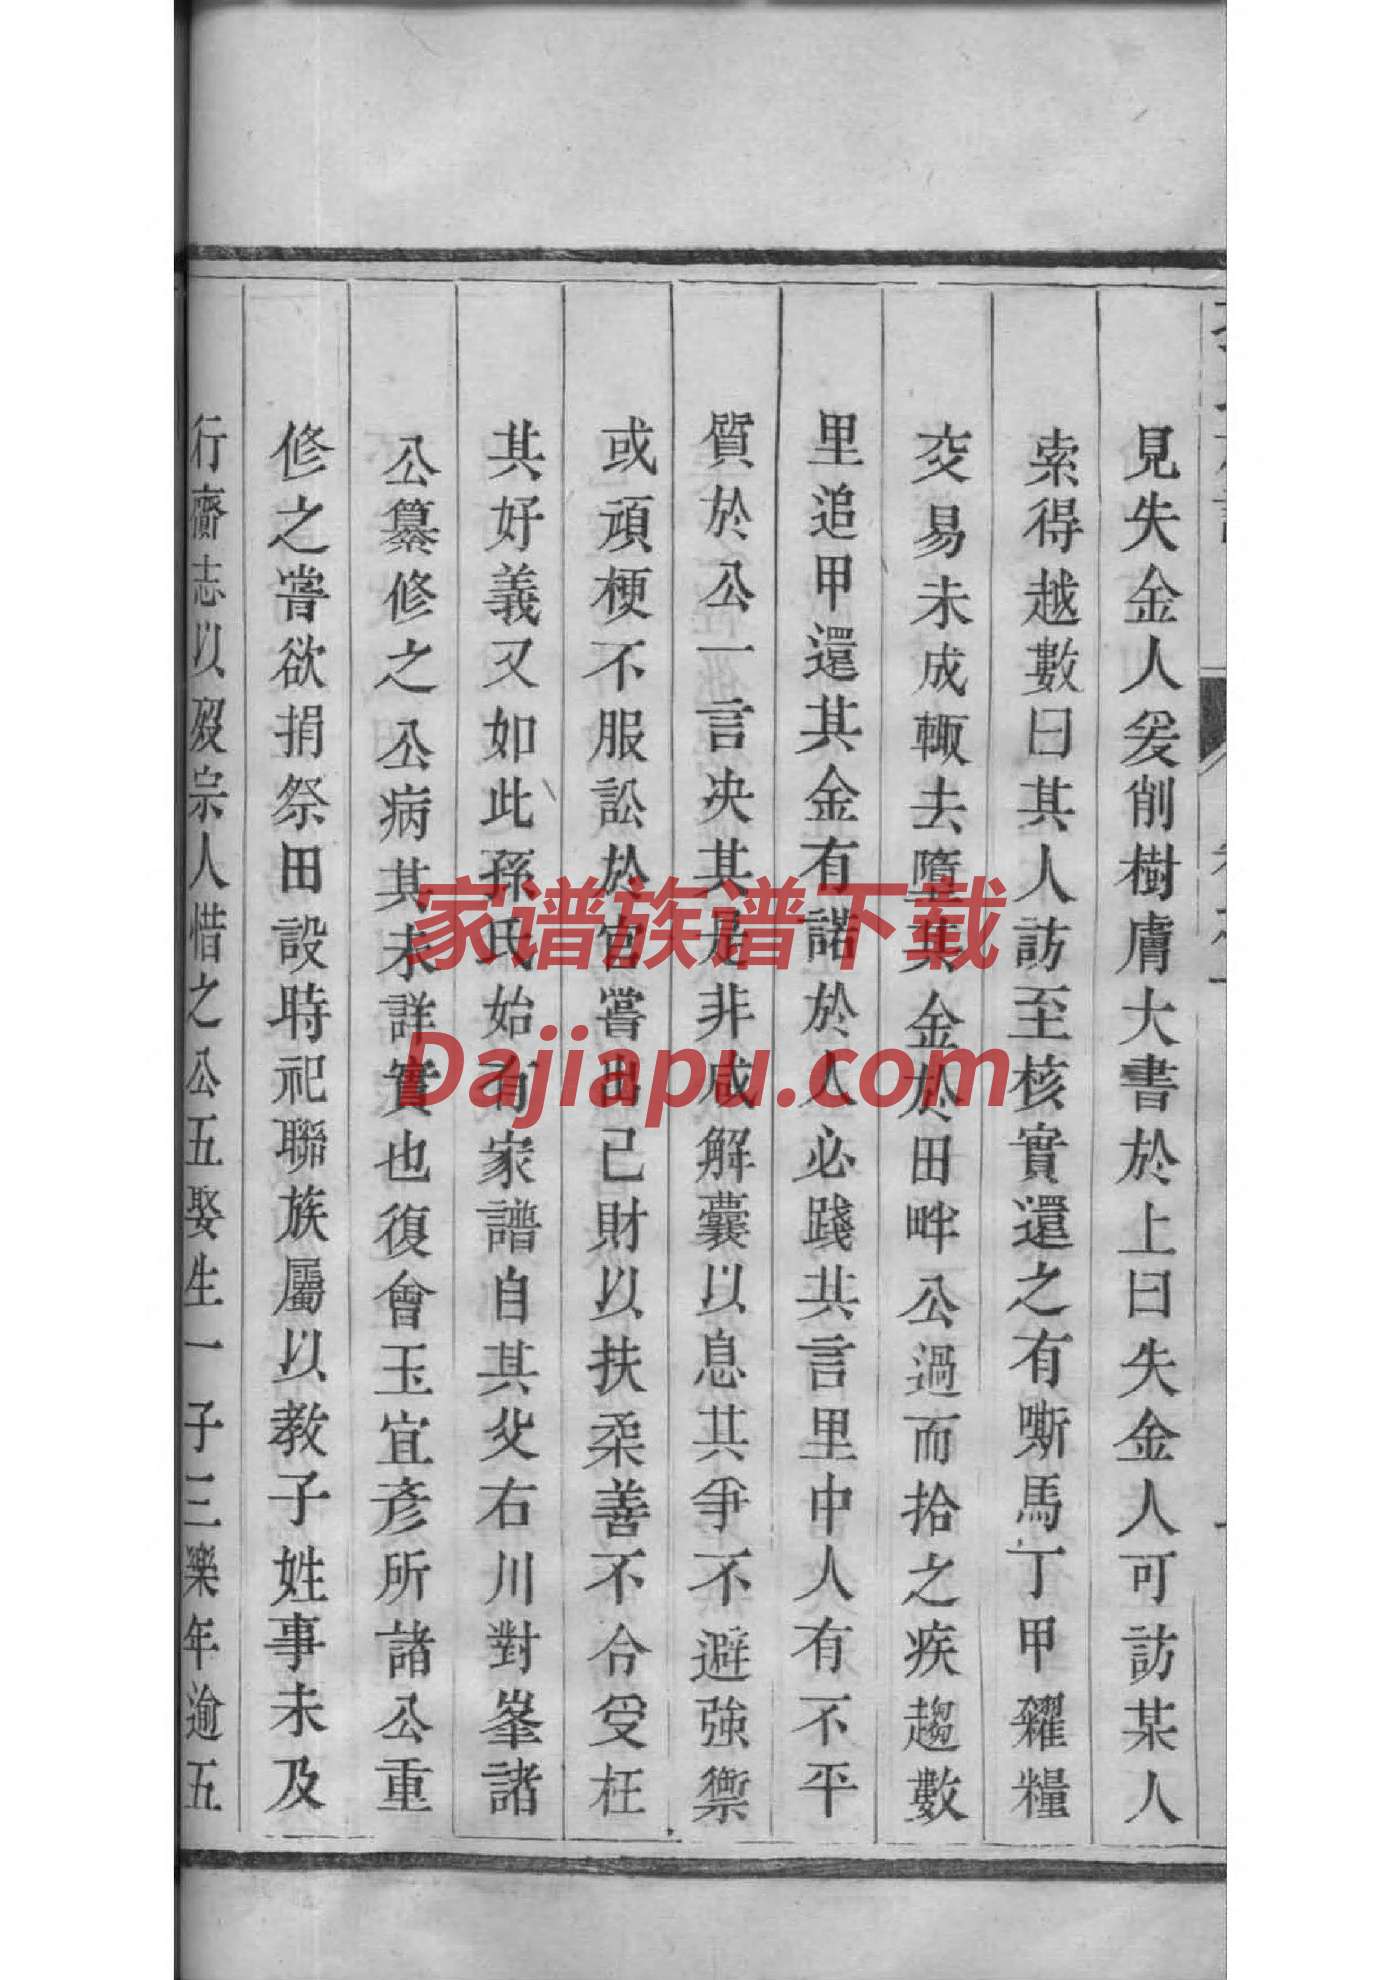 見失金人爰削樹膚大書於上曰失金人可訪某人
索得越數日其人訪至核實還之有嘶馬丁甲糴糧
交易未成輙去墮集金於田畔公過而拾之疾趨數
里追甲還其金有諾於人必踐其言里中人有不平
質於公一言决其是非咸解囊以息其爭不避強禦
或頑梗不服訟於官嘗出己財以扶柔善不合受枉
其好義又如此孫氏始有家譜自其父右川對峯諸
公纂修之公病其未詳實也復會玉宜彥所諸公重
修之嘗欲捐祭田設時祀聯族屬以教子姓事未及
行齎志以歿宗人惜之公五娶生一子三樂年逾五
家谱族谱下载
Dajiapu.com